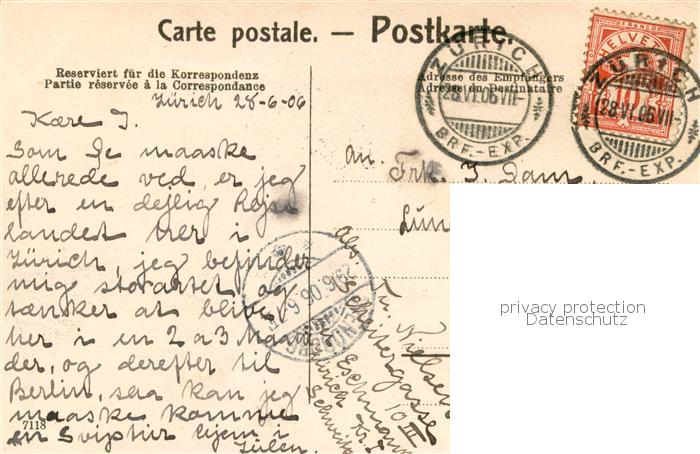 Carte postale. — Postkarte.
Reserviert für die Korrespondenz
Partie réservée à la Correspondance
Adresse des Empfängers
Adresse du Destinataire
Zürich 28-6-06
Kære I.
Som De maaske
allerede ved, er jeg
efter en dejlig Rejse
landet her i
Zürich, jeg befinder
mig storartet og
tænker at blive
her i en 2 a 3 Maane
der, og derefter til
Berlin, saa kan jeg
maaske komme
en Sviptur hjem i
Julen.
7118
An.
Frk. I. Dam
Lun
Abs.
Fr. Nielsen
Schweitergasse
10 III
Zürich Kr. I
Schweitz
FRANCO
HELVETIA
10
ZÜRICH
28.VI.06.VII-
BRF.-EXP.
ZÜRICH
28.VI.06.VII
BRF.-EXP.
privacy protection
Datenschutz